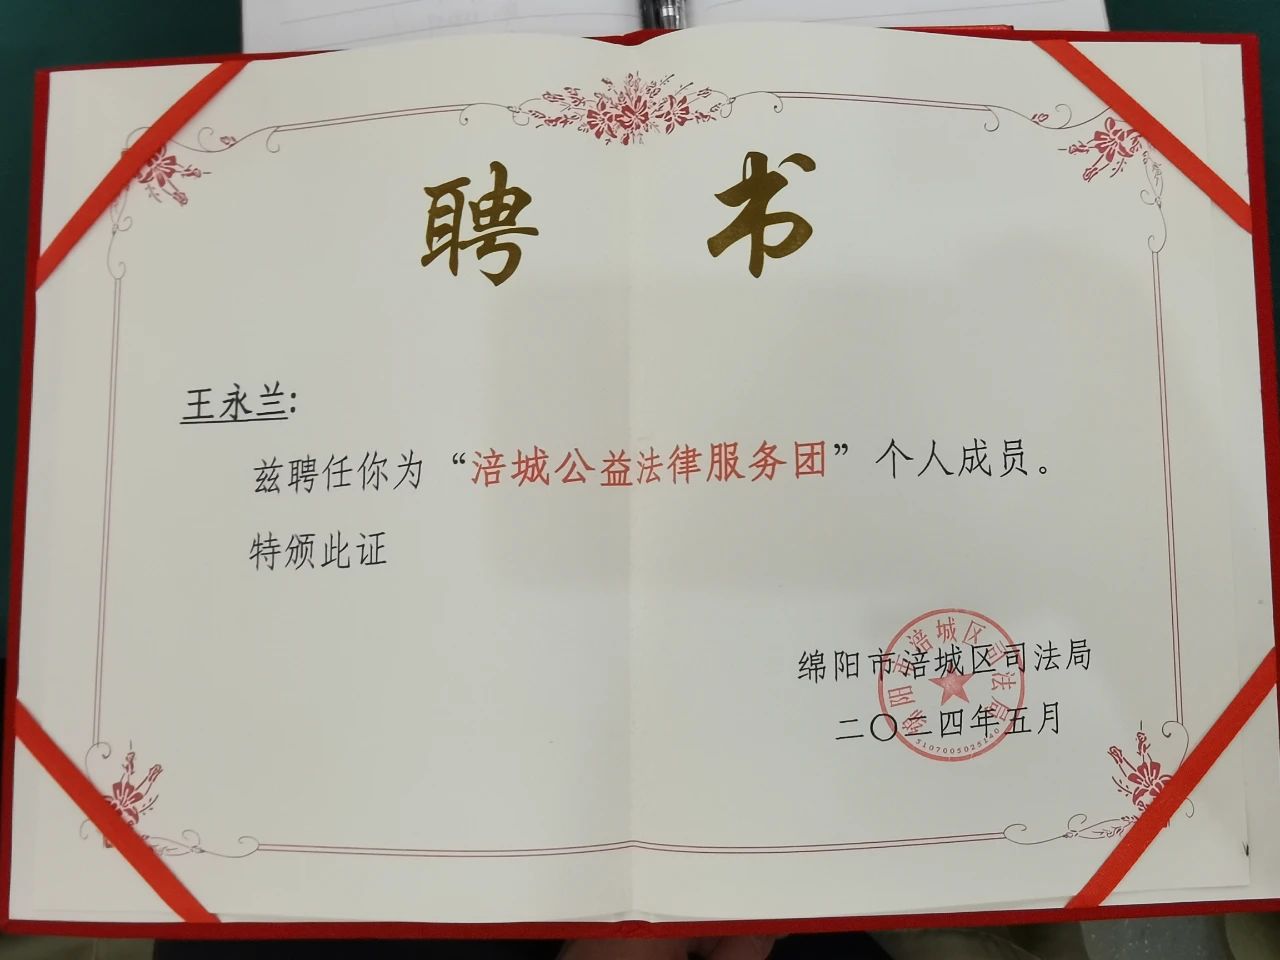 聘 书
王永兰:
兹聘任你为“涪城公益法律服务团”个人成员。
特颁此证
绵阳市涪城区司法局
二〇二四年五月
绵阳市涪城区司法局
5107005025140